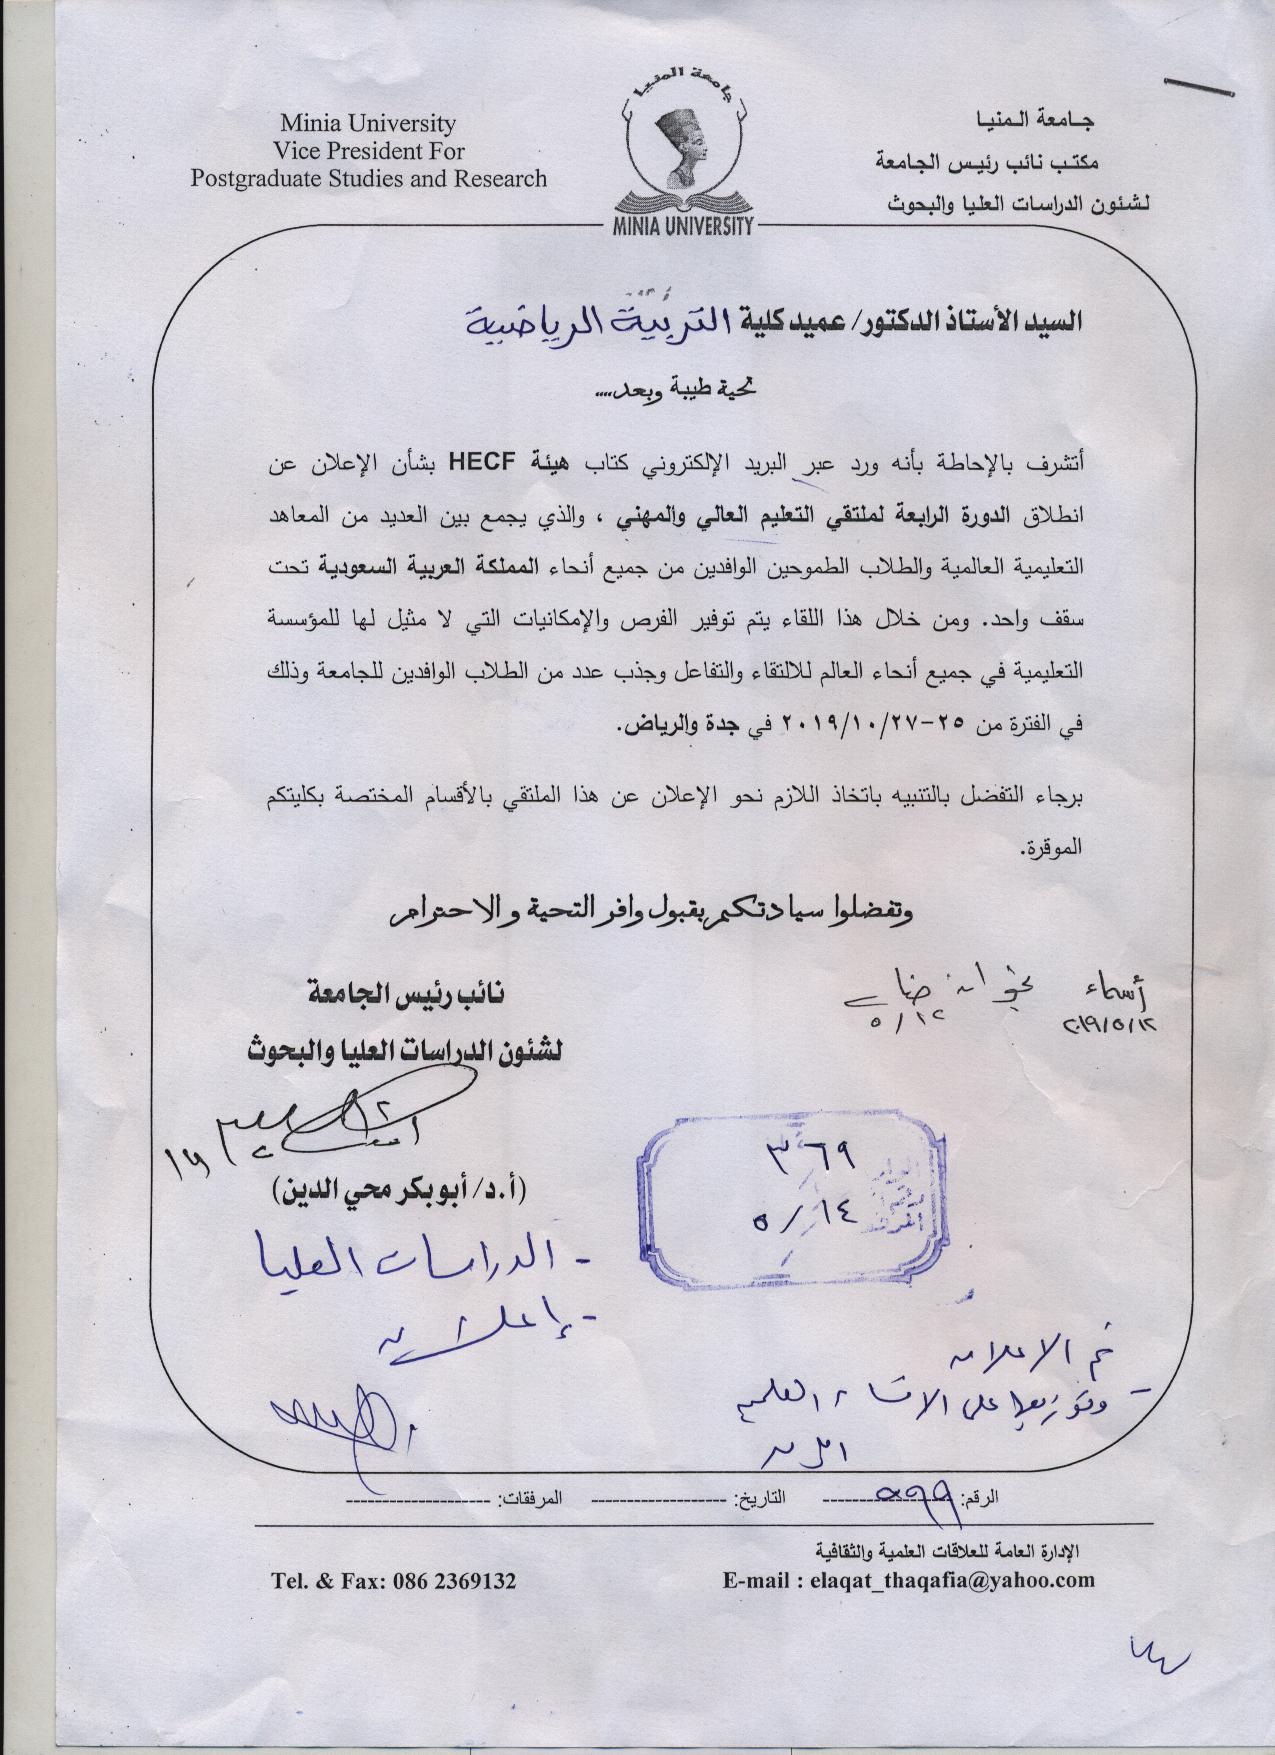 Minia University
Vice President For
Postgraduate Studies and Research
جامعة المنيا
MINIA UNIVERSITY
جـامعة الـمنيـا
مكتب نائب رئيس الجامعة
لشئون الدراسات العليا والبحوث
السيد الأستاذ الدكتور/ عميد كلية التربية الرياضية
تحية طيبة وبعد....
أتشرف بالإحاطة بأنه ورد عبر البريد الإلكتروني كتاب هيئة HECF بشأن الإعلان عن
انطلاق الدورة الرابعة لملتقي التعليم العالي والمهني ، والذي يجمع بين العديد من المعاهد
التعليمية العالمية والطلاب الطموحين الوافدين من جميع أنحاء المملكة العربية السعودية تحت
سقف واحد. ومن خلال هذا اللقاء يتم توفير الفرص والإمكانيات التي لا مثيل لها للمؤسسة
التعليمية في جميع أنحاء العالم للالتقاء والتفاعل وجذب عدد من الطلاب الوافدين للجامعة وذلك
في الفترة من ٢٥-٢٠١٩/١٠/٢٧ في جدة والرياض.
برجاء التفضل بالتنبيه باتخاذ اللازم نحو الإعلان عن هذا الملتقي بالأقسام المختصة بكليتكم
الموقرة.
وتفضلوا سيادتكم بقبول وافر التحية والاحترام
نائب رئيس الجامعة
لشئون الدراسات العليا والبحوث
أسماء
٢٠١٩/٥/١٢
٥/١٢
(أ.د/ أبو بكر محي الدين)
٣٦٩
٥/١٤
- الدراسات العليا
- إعلان
تم الاعلان
الرقم: ٥٩٩ التاريخ: ------------------- المرفقات: --------------------
الإدارة العامة للعلاقات العلمية والثقافية
Tel. & Fax: 086 2369132
E-mail : elaqat_thaqafia@yahoo.com